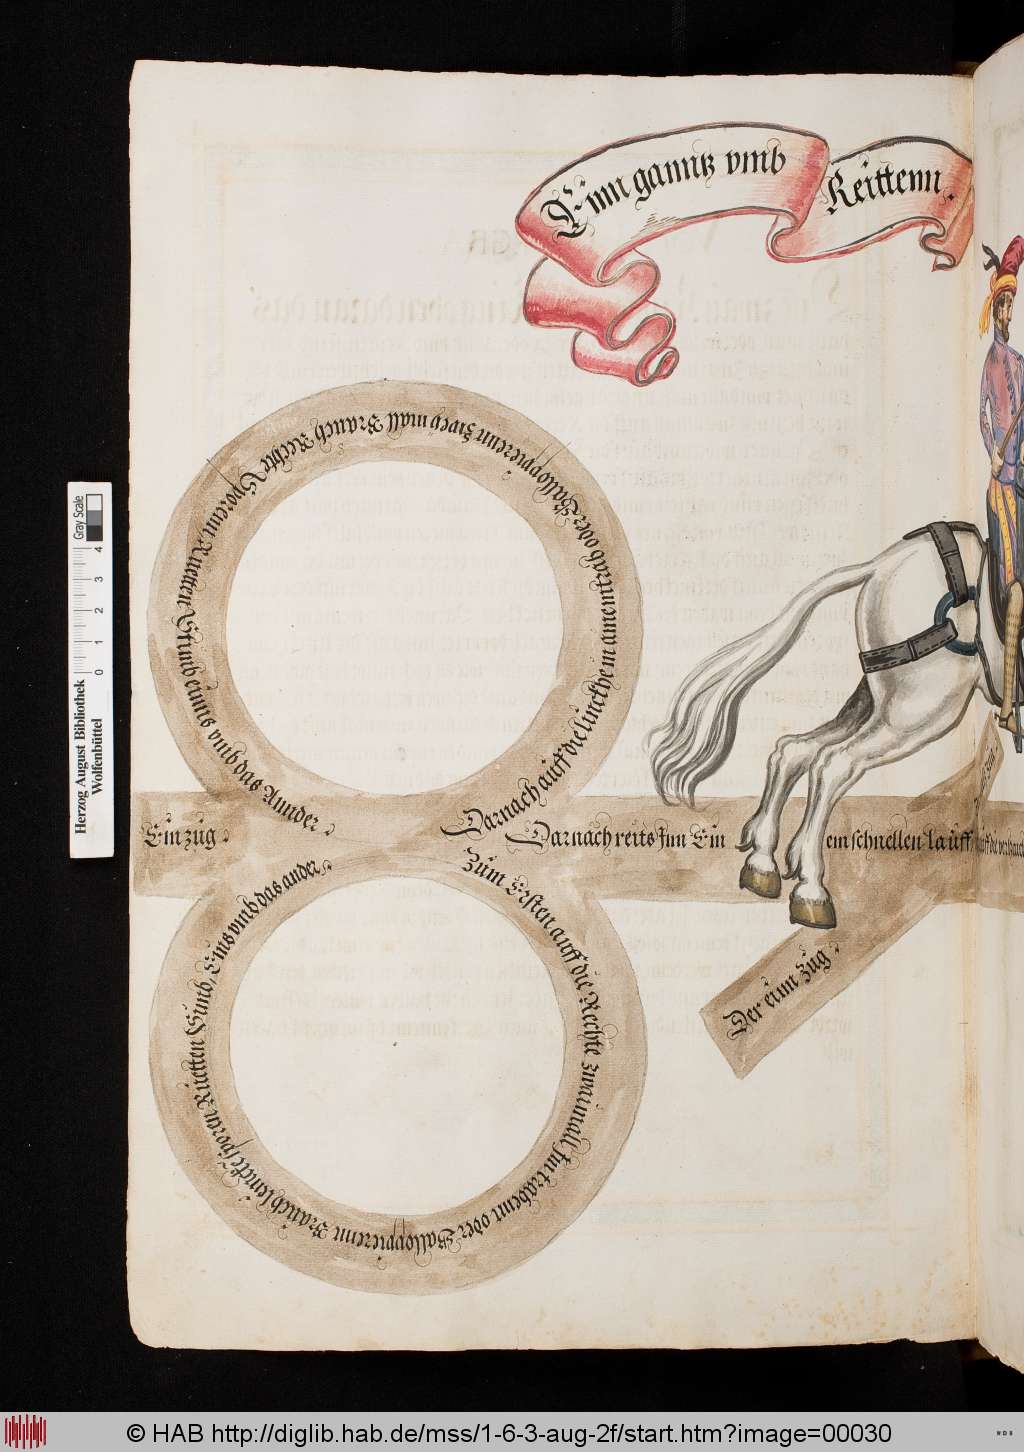 Einn ganntz vmb
Reittenn.
Darnach auff die linckhe in ainem trab oder Galloppierenn Zwey mall Brauch Rechte Sporenn Ruetten Stimb einns vmb das Annder
Ein zug
Darnach reits Inn Ein
ein schnellen lauff
auff die
Zum Ersten auff die Rechte zwaimall Im trabenn oder Galloppierenn Brauch lenckte sporen Ruetten Stimb, Eins vmb das ander
Der einn zug
Herzog August Bibliothek
Wolfenbüttel
0 1 2 3 4
Gray Scale
© HAB http://diglib.hab.de/mss/1-6-3-aug-2f/start.htm?image=00030